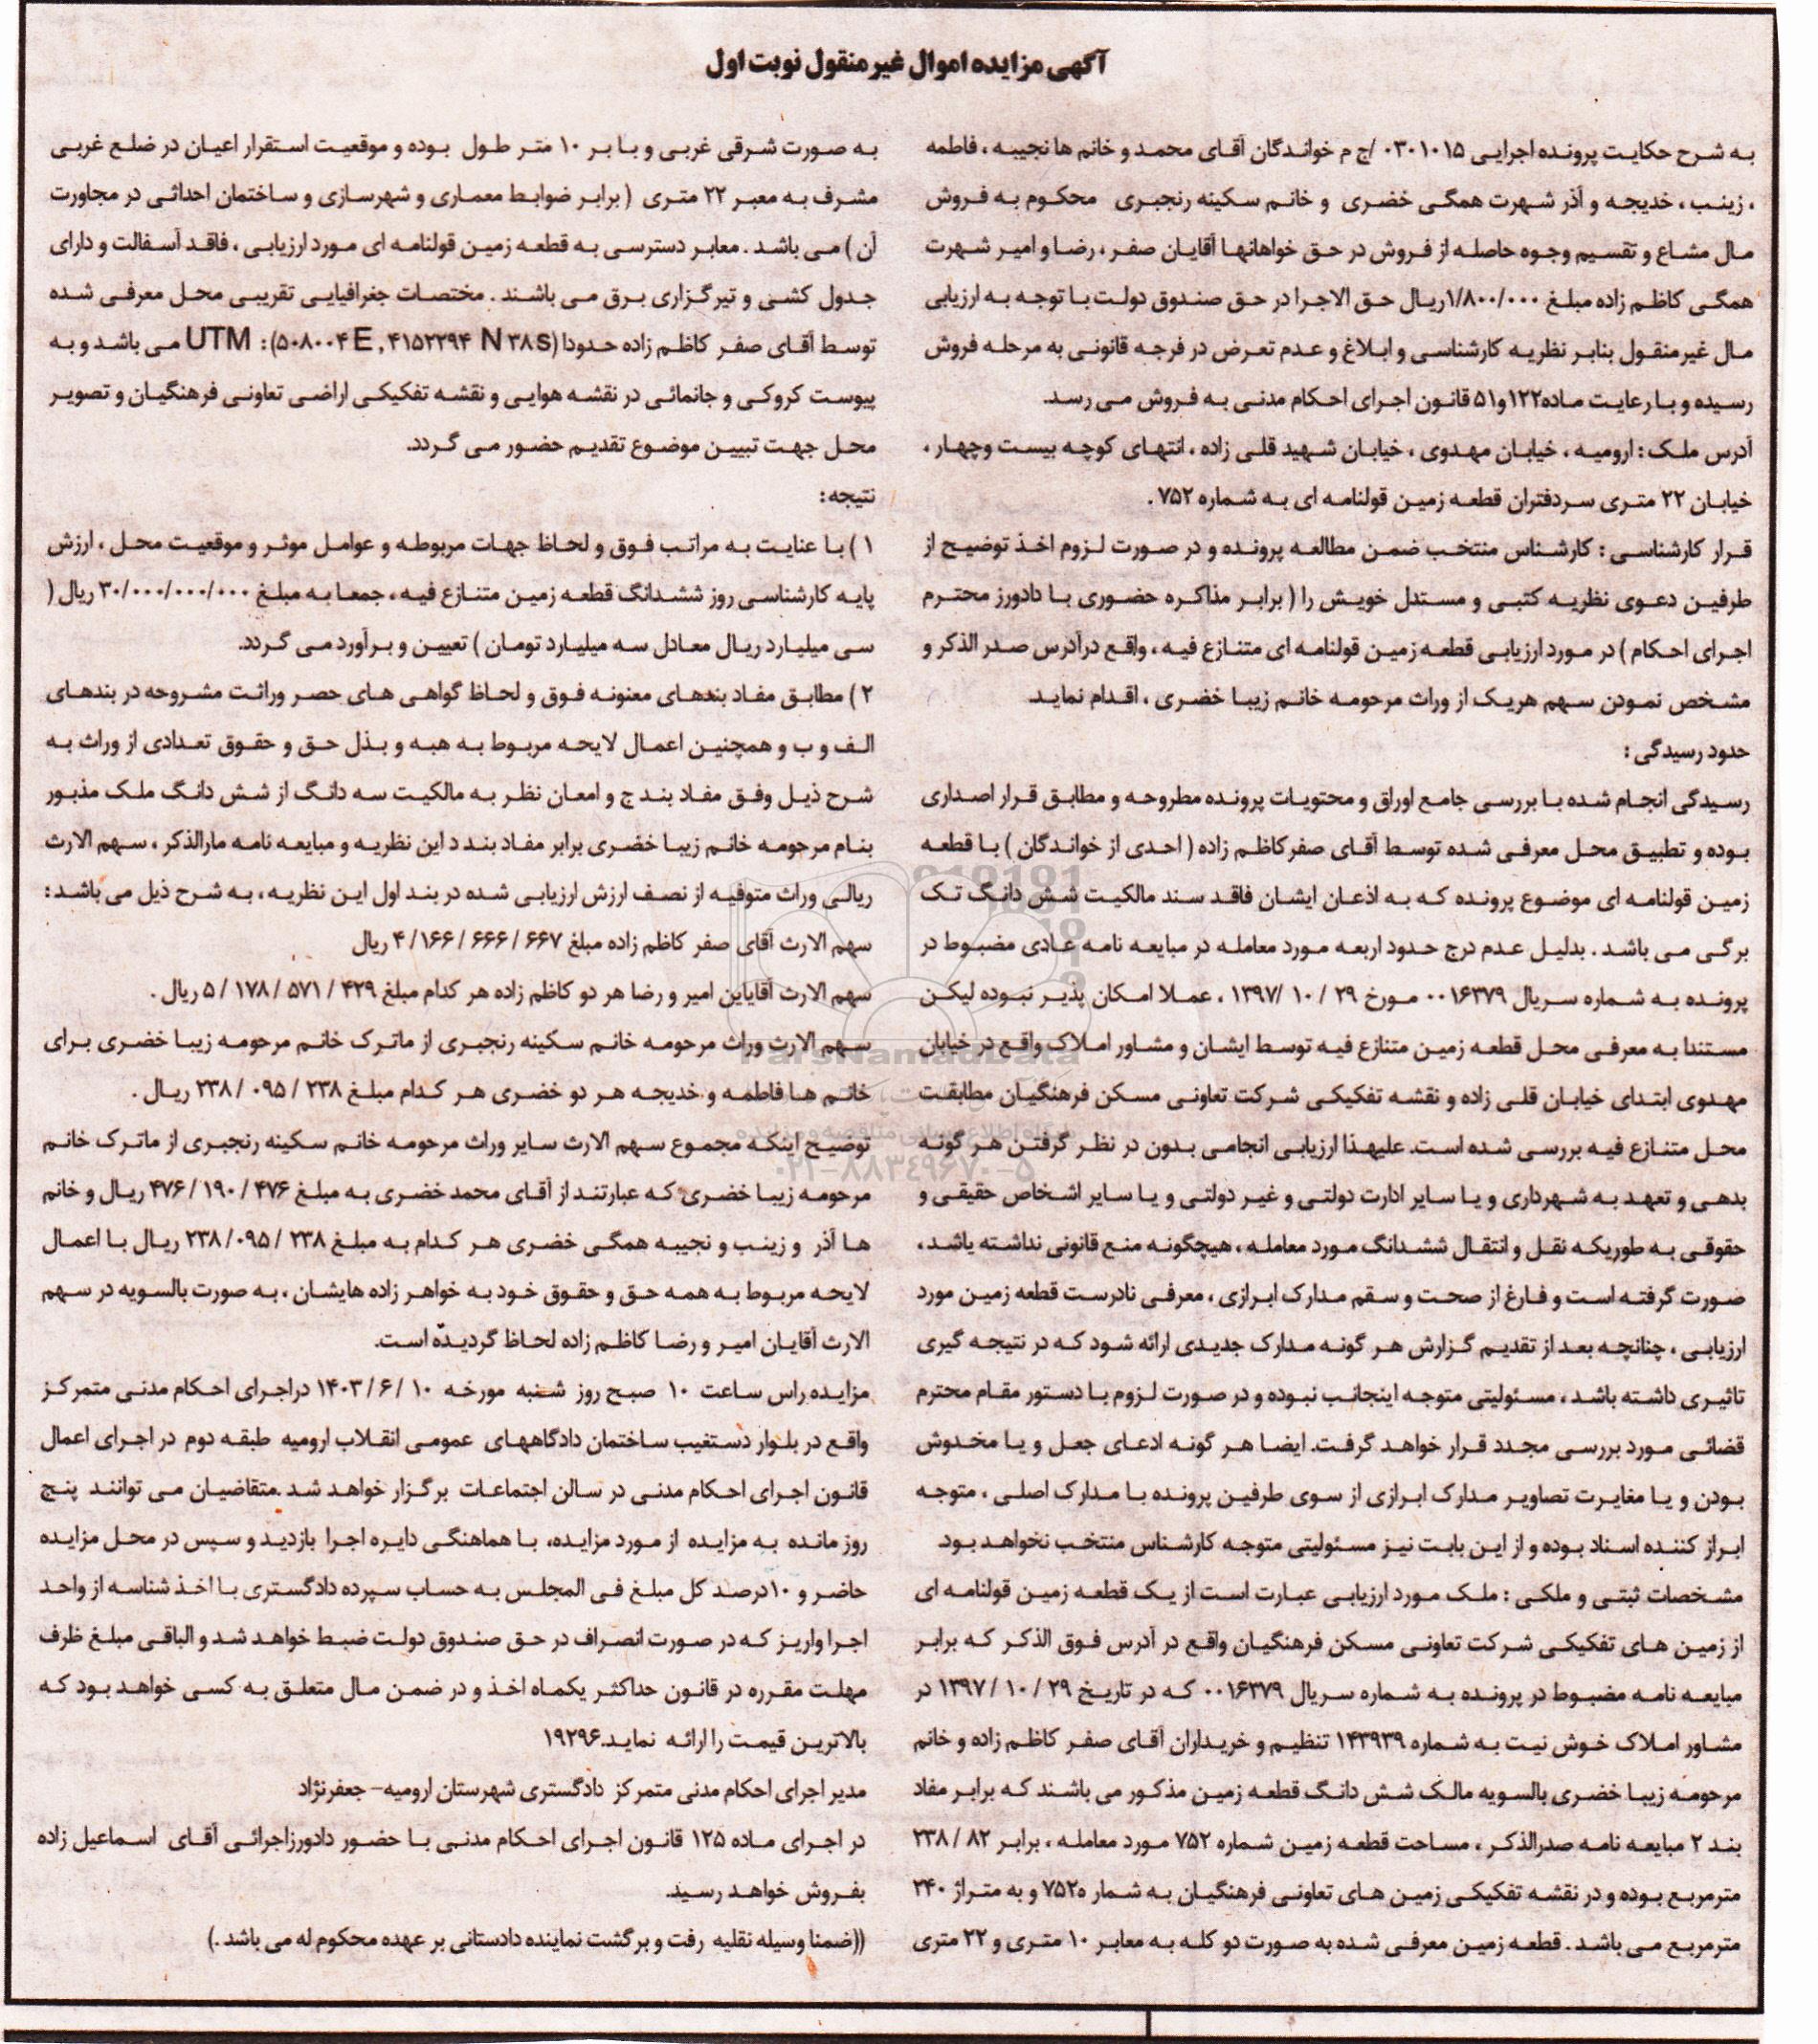 آگهی مزایده اموال غیر منقول نوبت اول
به شرح حکایت پرونده اجرایی ۰۳۰۱۰۱۵ /ج م خواندگان آقای محمد و خانم ها نجیبه ، فاطمه
، زینب ، خدیجه و آذر شهرت همگی خضری و خانم سکینه رنجبری محکوم به فروش
مال مشاع و تقسیم وجوه حاصله از فروش در حق خواهانها آقایان صفر ، رضا و امیر شهرت
همگی کاظم زاده مبلغ ۱/۸۰۰/۰۰۰ریال حق الاجرا در حق صندوق دولت با توجه به ارزیابی
مال غیرمنقول بنابر نظریه کارشناسی و ابلاغ و عدم تعرض در فرجه قانونی به مرحله فروش
رسیده و با رعایت ماده۱۲۲و۵۱ قانون اجرای احکام مدنی به فروش می رسد.
آدرس ملک : ارومیه ، خیابان مهدوی ، خیابان شهید قلی زاده ، انتهای کوچه بیست وچهار ،
خیابان ۲۲ متری سردفتران قطعه زمین قولنامه ای به شماره ۷۵۲ .
قرار کارشناسی : کارشناس منتخب ضمن مطالعه پرونده و در صورت لزوم اخذ توضیح از
طرفین دعوی نظریه کتبی و مستدل خویش را ( برابر مذاکره حضوری با دادورز محترم
اجرای احکام ) در مورد ارزیابی قطعه زمین قولنامه ای متنازع فیه ، واقع درآدرس صدر الذکر و
مشخص نمودن سهم هریک از وراث مرحومه خانم زیبا خضری ، اقدام نماید.
حدود رسیدگی :
رسیدگی انجام شده با بررسی جامع اوراق و محتویات پرونده مطروحه و مطابق قرار اصداری
بوده و تطبیق محل معرفی شده توسط آقای صفرکاظم زاده ( احدی از خواندگان ) با قطعه
زمین قولنامه ای موضوع پرونده که به اذعان ایشان فاقد سند مالکیت شش دانگ تک
برگی می باشد . بدلیل عدم درج حدود اربعه مورد معامله در مبایعه نامه عادی مضبوط در
پرونده به شماره سریال ۰۰۱۶۳۷۹ مورخ ۲۹ / ۱۰ /۱۳۹۷ ، عملا امکان پذیر نبوده لیکن
مستندا به معرفی محل قطعه زمین متنازع فیه توسط ایشان و مشاور املاک واقع در خیابان
مهدوی ابتدای خیابان قلی زاده و نقشه تفکیکی شرکت تعاونی مسکن فرهنگیان مطابقت
محل متنازع فیه بررسی شده است. علیهذا ارزیابی انجامی بدون در نظر گرفتن هر گونه
بدهی و تعهد به شهرداری و یا سایر ادارت دولتی و غیر دولتی و یا سایر اشخاص حقیقی و
حقوقی به طوریکه نقل و انتقال ششدانگ مورد معامله ، هیچگونه منع قانونی نداشته یاشد ،
صورت گرفته است و فارغ از صحت و سقم مدارک ابرازی ، معرفی نادرست قطعه زمین مورد
ارزیابی ، چنانچه بعد از تقدیم گزارش هر گونه مدارک جدیدی ارائه شود که در نتیجه گیری
تاثیری داشته باشد ، مسئولیتی متوجه اینجانب نبوده و در صورت لزوم با دستور مقام محترم
قضائی مورد بررسی مجدد قرار خواهد گرفت. ایضا هر گونه ادعای جعل و یا مخدوش
بودن و یا مغایرت تصاویر مدارک ابرازی از سوی طرفین پرونده با مدارک اصلی ، متوجه
ابراز کننده اسناد بوده و از این بابت نیز مسئولیتی متوجه کارشناس منتخب نخواهد بود.
مشخصات ثبتی و ملکی : ملک مورد ارزیابی عبارت است از یک قطعه زمین قولنامه ای
از زمین های تفکیکی شرکت تعاونی مسکن فرهنگیان واقع در آدرس فوق الذکر که برابر
مبایعه نامه مضبوط در پرونده به شماره سریال ۰۰۱۶۳۷۹ که در تاریخ ۲۹ / ۱۰ / ۱۳۹۷ در
مشاور املاک خوش نیت به شماره ۱۴۳۹۳۹ تنظیم و خریداران آقای صفر کاظم زاده و خانم
مرحومه زیبا خضری بالسویه مالک شش دانگ قطعه زمین مذکور می باشند که برابر مفاد
بند ۲ مبایعه نامه صدرالذکر ، مساحت قطعه زمین شماره ۷۵۲ مورد معامله ، برابر ۸۲ / ۲۳۸
مترمربع بوده و در نقشه تفکیکی زمین های تعاونی فرهنگیان به شمار ه۷۵۲ و به متراژ ۲۴۰
مترمربع می باشد . قطعه زمین معرفی شده به صورت دو کله به معابر ۱۰ متری و ۲۲ متری
به صورت شرقی غربی و با بر ۱۰ متر طول بوده و موقعیت استقرار اعیان در ضلع غربی
مشرف به معبر ۲۲ متری ( برابر ضوابط معماری و شهرسازی و ساختمان احداثی در مجاورت
آن ) می باشد . معابر دسترسی به قطعه زمین قولنامه ای مورد ارزیابی ، فاقد آسفالت و دارای
جدول کشی و تیرگزاری برق می باشند . مختصات جغرافیایی تقریبی محل معرفی شده
توسط آقای صفر کاظم زاده حدودا (۵۰۸۰۰۴E , ۴۱۵۲۲۹۴ N ۳۸s) : UTM می باشد و به
پیوست کروکی و جانمائی در نقشه هوایی و نقشه تفکیکی اراضی تعاونی فرهنگیان و تصویر
محل جهت تبیین موضوع تقدیم حضور می گردد.
نتیجه :
۱ ) با عنایت به مراتب فوق و لحاظ جهات مربوطه و عوامل موثر و موقعیت محل ، ارزش
پایه کارشناسی روز ششدانگ قطعه زمین متنازع فیه ، جمعا به مبلغ ۳۰/۰۰۰/۰۰۰/۰۰۰ ریال (
سی میلیارد ریال معادل سه میلیارد تومان ) تعیین و برآورد می گردد.
۲ ) مطابق مفاد بندهای معنونه فوق و لحاظ گواهی های حصر وراثت مشروحه در بندهای
الف و ب و همچنین اعمال لایحه مربوط به هبه و بذل حق و حقوق تعدادی از وراث به
شرح ذیل وفق مفاد بند ج و امعان نظر به مالکیت سه دانگ از شش دانگ ملک مذبور
بنام مرحومه خانم زیبا خضری برابر مفاد بند د این نظریه و مبایعه نامه مارالذکر ، سهم الارث
ریالی وراث متوفیه از نصف ارزش ارزیابی شده در بند اول این نظریه ، به شرح ذیل می باشد :
سهم الارث آقای صفر کاظم زاده مبلغ ۶۶۷ / ۶۶۶ / ۱۶۶/ ۴ ریال
سهم الارث آقایاین امیر و رضا هر دو کاظم زاده هر کدام مبلغ ۴۲۹ / ۵۷۱ / ۱۷۸ / ۵ ریال .
سهم الارث وراث مرحومه خانم سکینه رنجبری از ماترک خانم مرحومه زیبا خضری برای
خانم ها فاطمه و خدیجه هر دو خضری هر کدام مبلغ ۲۳۸ / ۰۹۵ / ۲۳۸ ریال .
توضیح اینکه مجموع سهم الارث سایر وراث مرحومه خانم سکینه رنجبری از ماترک خانم
مرحومه زیبا خضری که عبارتند از آقای محمد خضری به مبلغ ۴۷۶ / ۱۹۰ / ۴۷۶ ریال و خانم
ها آذر و زینب و نجیبه همگی خضری هر کدام به مبلغ ۲۳۸ / ۰۹۵/ ۲۳۸ ریال با اعمال
لایحه مربوط به همه حق و حقوق خود به خواهر زاده هایشان ، به صورت بالسویه در سهم
الارث آقایان امیر و رضا کاظم زاده لحاظ گردیده است.
مزایده راس ساعت ۱۰ صبح روز شنبه مورخه ۱۰ / ۶ / ۱۴۰۳ دراجرای احکام مدنی متمرکز
واقع در بلوار دستغیب ساختمان دادگاههای عمومی انقلاب ارومیه طبقه دوم در اجرای اعمال
قانون اجرای احکام مدنی در سالن اجتماعات برگزار خواهد شد .متقاضیان می توانند پنج
روز مانده به مزایده از مورد مزایده، با هماهنگی دایره اجرا بازدید و سپس در محل مزایده
حاضر و ۱۰درصد کل مبلغ فی المجلس به حساب سپرده دادگستری با اخذ شناسه از واحد
اجرا واریز که در صورت انصراف در حق صندوق دولت ضبط خواهد شد و الباقی مبلغ ظرف
مهلت مقرره در قانون حداکثر یکماه اخذ و در ضمن مال متعلق به کسی خواهد بود که
بالاترین قیمت را ارائه نماید.۱۹۲۹۶
مدیر اجرای احکام مدنی متمرکز دادگستری شهرستان ارومیه- جعفرنژاد
در اجرای ماده ۱۲۵ قانون اجرای احکام مدنی با حضور دادورزاجرائی آقای اسماعیل زاده
بفروش خواهد رسید.
((ضمنا وسیله نقلیه رفت و برگشت نماینده دادستانی بر عهده محکوم له می باشد .)
ParsNamadData
۰۲۱-۸۸۳۴۹۶۷۰-۵